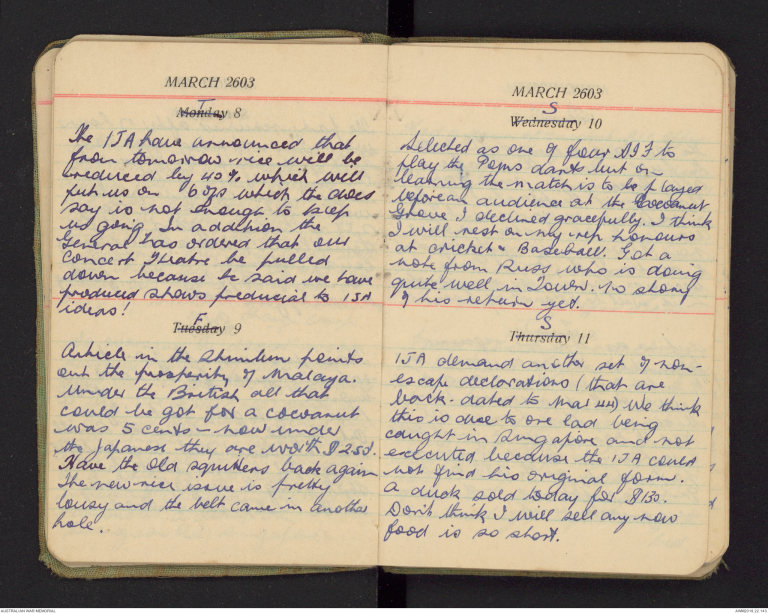 MARCH 2603
T
Monday 8
The IJA have announced that
from tomorrow rice will be
reduced by 40% which will
put us on which the docs
say is not enough to keep
us going. In addition the
General has ordered that our
Concert Theatre be pulled
down because he said we have
produced shows predudicial to IJA
ideas!
F
Tuesday 9
Article in the Shimbun points
out the prosperity of Malaya.
Under the British all that
could be got for a cocoanut
was 5 cents - now under
the Japanese they are worth $2.50.
Have the old squitters back again
The new rice issue is pretty
lousy and the belt came in another
hole.
MARCH 2603
S
Wednesday 10
Selected as one of four AIF to
play the Poms darts but on
learning the match is to be played
before an audience at the Cocoanut
Grove I declined gracefully. I think
I will rest on my rep honours
at cricket & Baseball. Got a
note from Russ who is doing
quite well in Tower. No story
of his return yet.
S
Thursday 11
IJA demand another set of non-
escape declarations (that are
back-dated to Mar 44) We think
this is due to one lad being
caught in Singapore and not
executed because the IJA could
not find his original form.
A duck sold today for $130.
Don't think I will sell any now
food is so short.
AUSTRALIAN WAR MEMORIAL